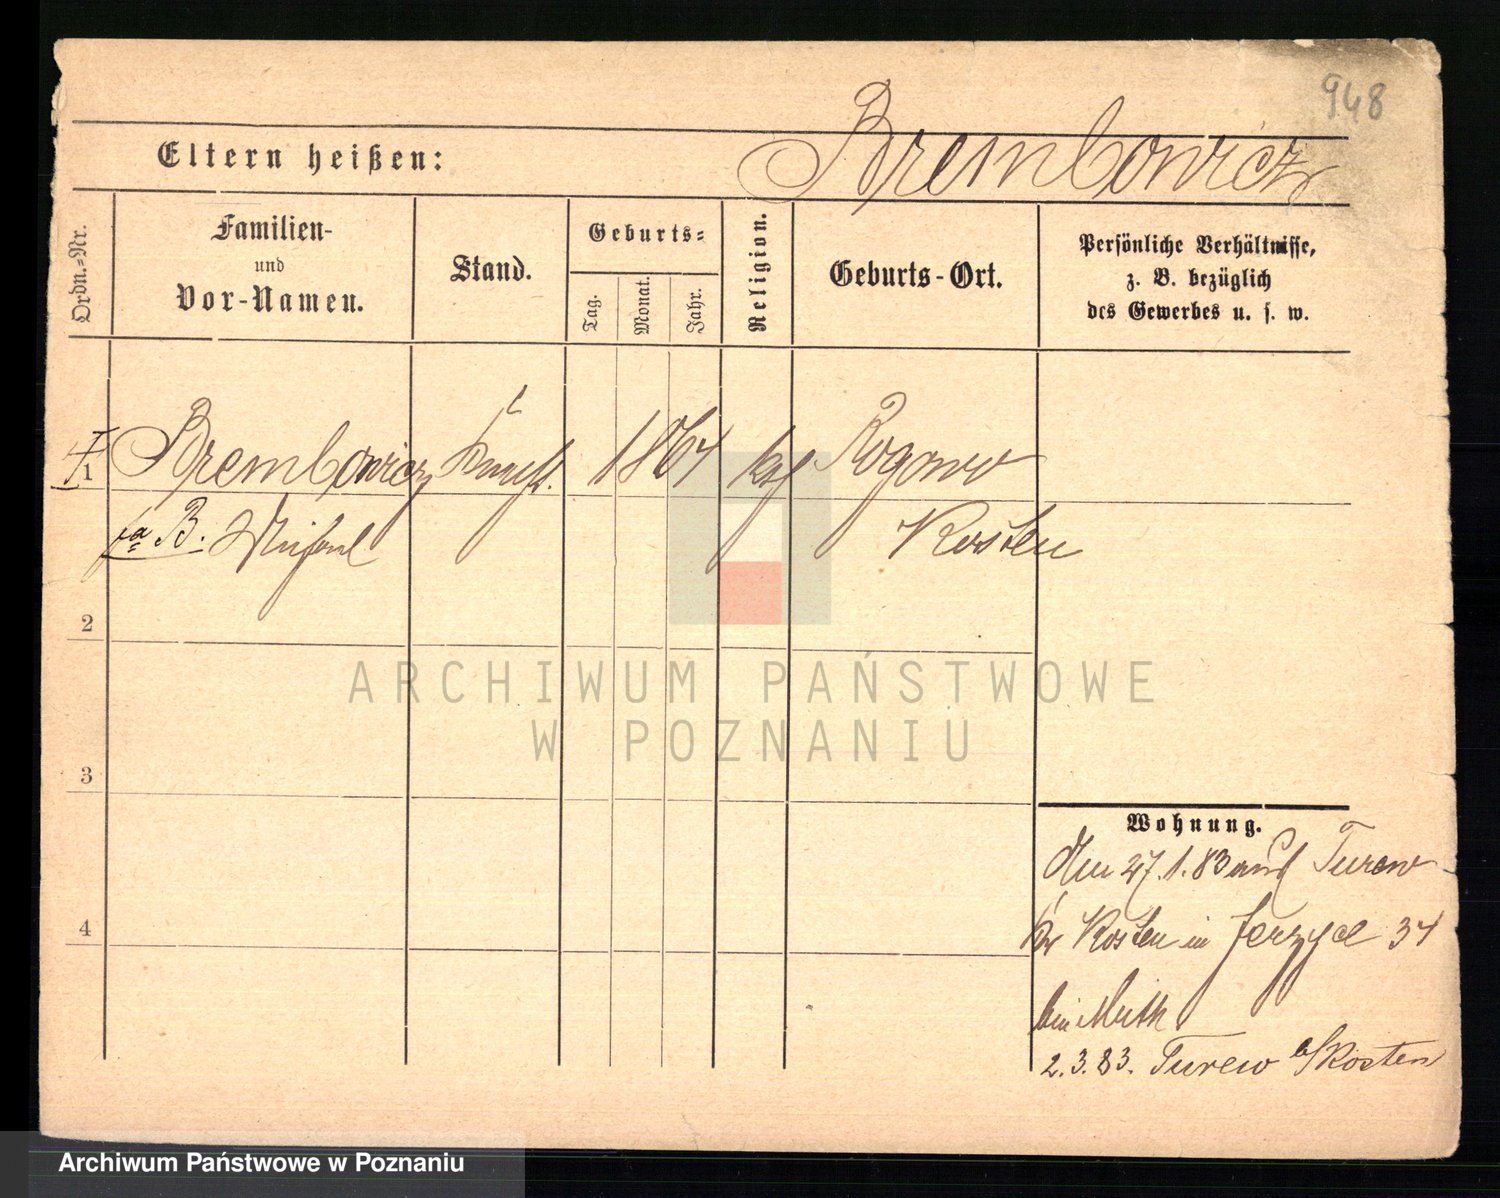 948
Eltern heißen: Brembowicz
Ordn.-Nr.
Familien-
und
Vor-Namen.
Stand.
Geburts-
Tag.
Monat.
Jahr.
Religion.
Geburts-Ort.
Persönliche Verhältnisse,
z. B. bezüglich
des Gewerbes u. s. w.
1 Brembowicz 1864 kth Rogowo
B. Michael Kosten
2
3
4
Wohnung.
27.1.83 aus Turew
Kr Kosten in Jerzyce 34
bei Muth
2.3.83. Turew b/Kosten
ARCHIWUM PAŃSTWOWE
W POZNANIU
Archiwum Państwowe w Poznaniu